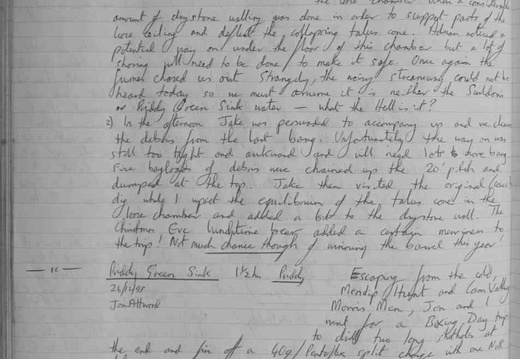 the loose chamber when a considerable
amount of drystone walling was done in order to support parts of the
loose ceiling and deflect the collapsing talus cone. Adrian noticed a
potential way on under the floor of this chamber but a lot of
shoring will need to be done to make it safe. Once again the
fumes chased us out. Strangely, the noisy streamway could not be
heard today so we must assume it is neither the Swildons
or Priddy Green Sink water - what the Hell is it?
2) In the afternoon Jake was persuaded to accompany us and we cleared
the debris from the last bang. Unfortunately the way on was
still too tight and awkward and will need lots more bang.
Five bagloads of debris were chained up the 20' pitch and
dumped at the top. Jake then visited the original
dig while I upset the equilibrium of the talus cone in the
loose chamber and added a bit to the drystone wall. The
Christmas Eve lunchtime beers added a certain merriness to
the trip! Not much chance though of winning the barrel this year!
— " — Priddy Green Sink 1½ hr Priddy Escaping from the cold,
26/12/95 Mendip Hunt and Cam Valley
Jon Attwood Morris Men, Jon and I
went for a Boxing Day trip
to drill two long shotholes at
the end and fire off a 40g/Pentaflex split charge with one No8